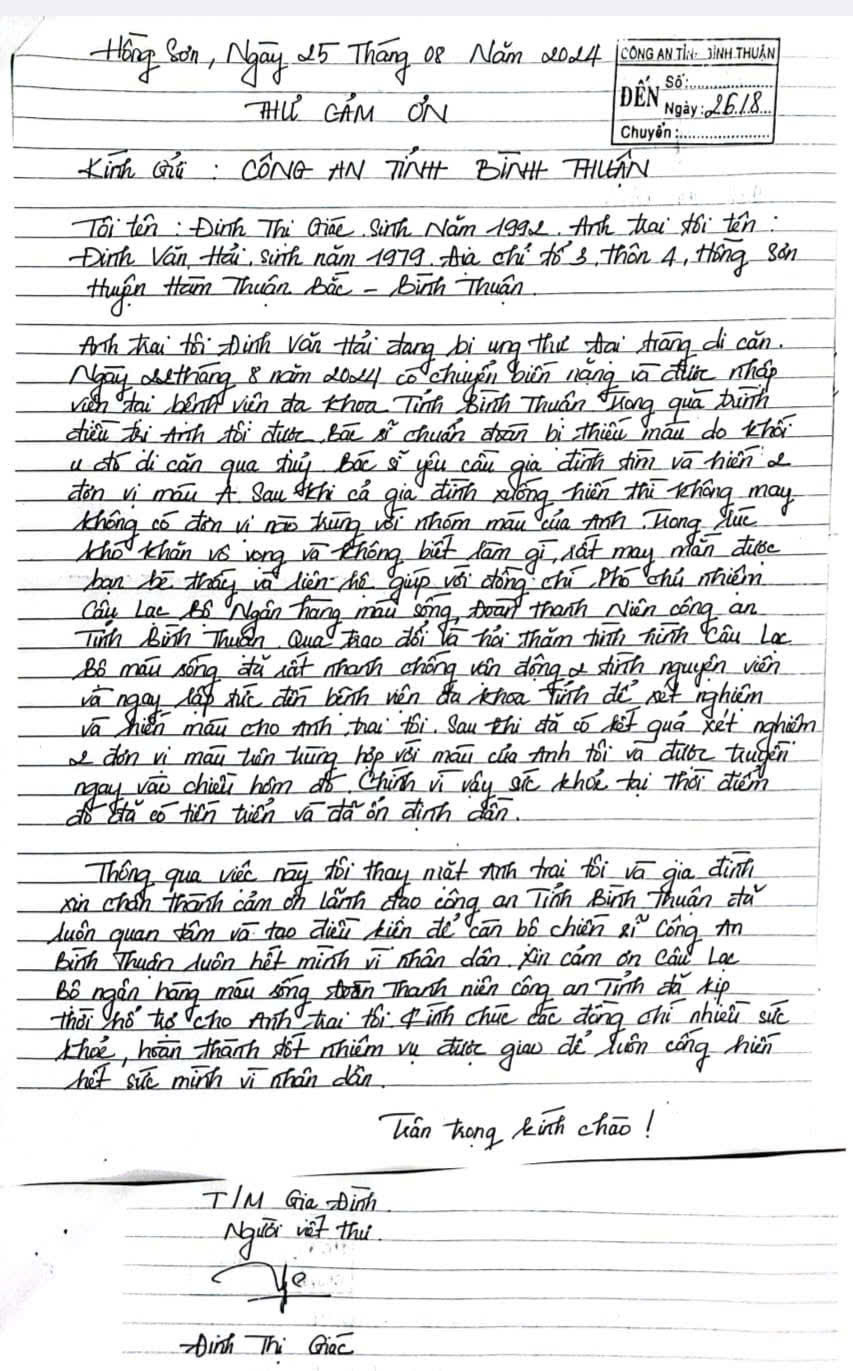 Hồng Sơn, Ngày 25 Tháng 08 Năm 2024
CÔNG AN TỈNH BÌNH THUẬN
ĐẾN Số:
Ngày: 26/8
Chuyển:
THƯ CẢM ƠN
Kính Gửi : CÔNG AN TỈNH BÌNH THUẬN
Tôi tên : Đinh Thị Giác. Sinh Năm 1992. Anh trai tôi tên :
Đinh Văn Hải, sinh năm 1979. Địa chỉ tổ 3, thôn 4, Hồng Sơn
Huyện Hàm Thuận Bắc - Bình Thuận.
Anh trai tôi Đinh Văn Hải đang bị ung thư đại tràng di căn.
Ngày 22 tháng 8 năm 2024 có chuyển biến nặng và được nhập
viện tại bệnh viện đa khoa Tỉnh Bình Thuận Trong quá trình
điều trị Anh tôi được Bác sĩ chuẩn đoán bị thiếu máu do khối
u đó di căn qua tuỷ. Bác sĩ yêu cầu gia đình tìm và hiến 2
đơn vị máu A. Sau khi cả gia đình xuống hiến thì không may
không có đơn vị nào trùng với nhóm máu của Anh. Trong lúc
khó khăn vô vọng và không biết làm gì, rất may mắn được
bạn bè thấy và liên hệ giúp với đồng chí Phó chủ nhiệm
Câu Lạc Bộ Ngân hàng máu sống, Đoàn thanh Niên công an
Tỉnh Bình Thuận. Qua trao đổi và hỏi thăm tình hình Câu Lạc
Bộ máu sống đã rất nhanh chóng vận động 2 tình nguyện viên
và ngay lập tức đến bệnh viện đa khoa Tỉnh để xét nghiệm
và hiến máu cho Anh trai tôi. Sau khi đã có kết quả xét nghiệm
2 đơn vị máu trên trùng hợp với máu của Anh tôi và được truyền
ngay vào chiều hôm đó. Chính vì vậy sức khoẻ tại thời điểm
đó đã có tiến triển và đã ổn định dần.
Thông qua việc này tôi thay mặt Anh trai tôi và gia đình
xin chân thành cảm ơn lãnh đạo công an Tỉnh Bình Thuận đã
luôn quan tâm và tạo điều kiện để cán bộ chiến sĩ Công An
Bình Thuận luôn hết mình vì nhân dân. Xin cảm ơn Câu Lạc
Bộ ngân hàng máu sống đoàn Thanh niên công an Tỉnh đã kịp
thời hỗ trợ cho Anh trai tôi. Kính chúc các đồng chí nhiều sức
khoẻ, hoàn thành tốt nhiệm vụ được giao để luôn cống hiến
hết sức mình vì nhân dân.
Trân trọng kính chào !
T/M Gia Đình
Người viết thư.
Đinh Thị Giác